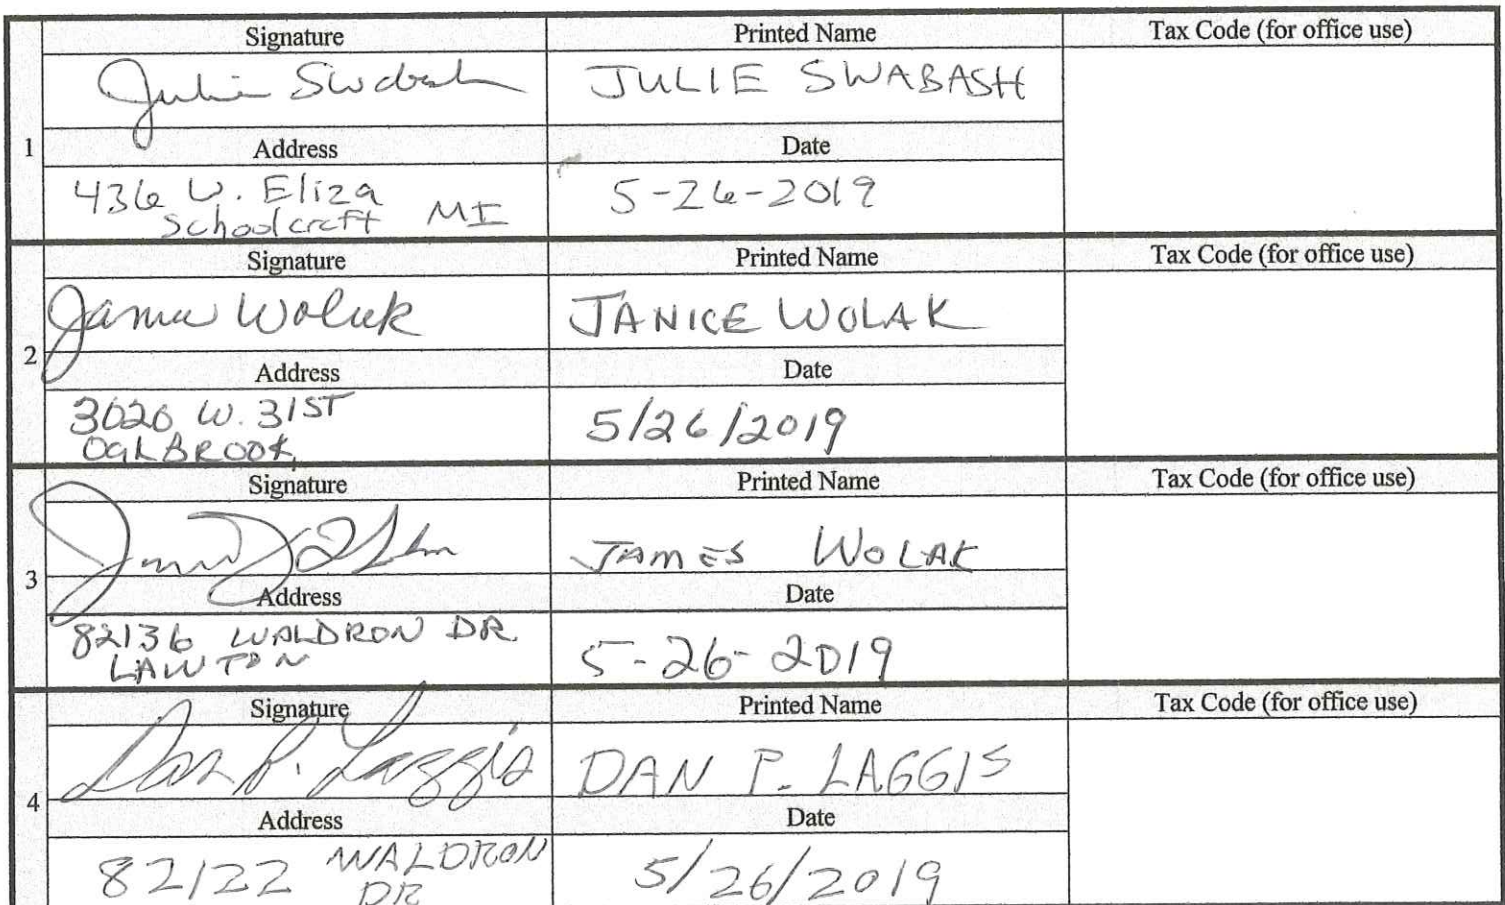 Signature Printed Name Tax Code (for office use)
Julie Swabash JULIE SWABASH
1 Address Date
436 W. Eliza
Schoolcraft MI 5-26-2019
Signature Printed Name Tax Code (for office use)
Janice Wolak JANICE WOLAK
2 Address Date
3020 W. 31ST
OakBROOK 5/26/2019
Signature Printed Name Tax Code (for office use)
JAMES WOLAK
3 Address Date
82136 WALDRON DR.
LAWTON 5-26-2019
Signature Printed Name Tax Code (for office use)
Dan P. Laggis DAN P. LAGGIS
4 Address Date
82122 WALDRON
DR 5/26/2019